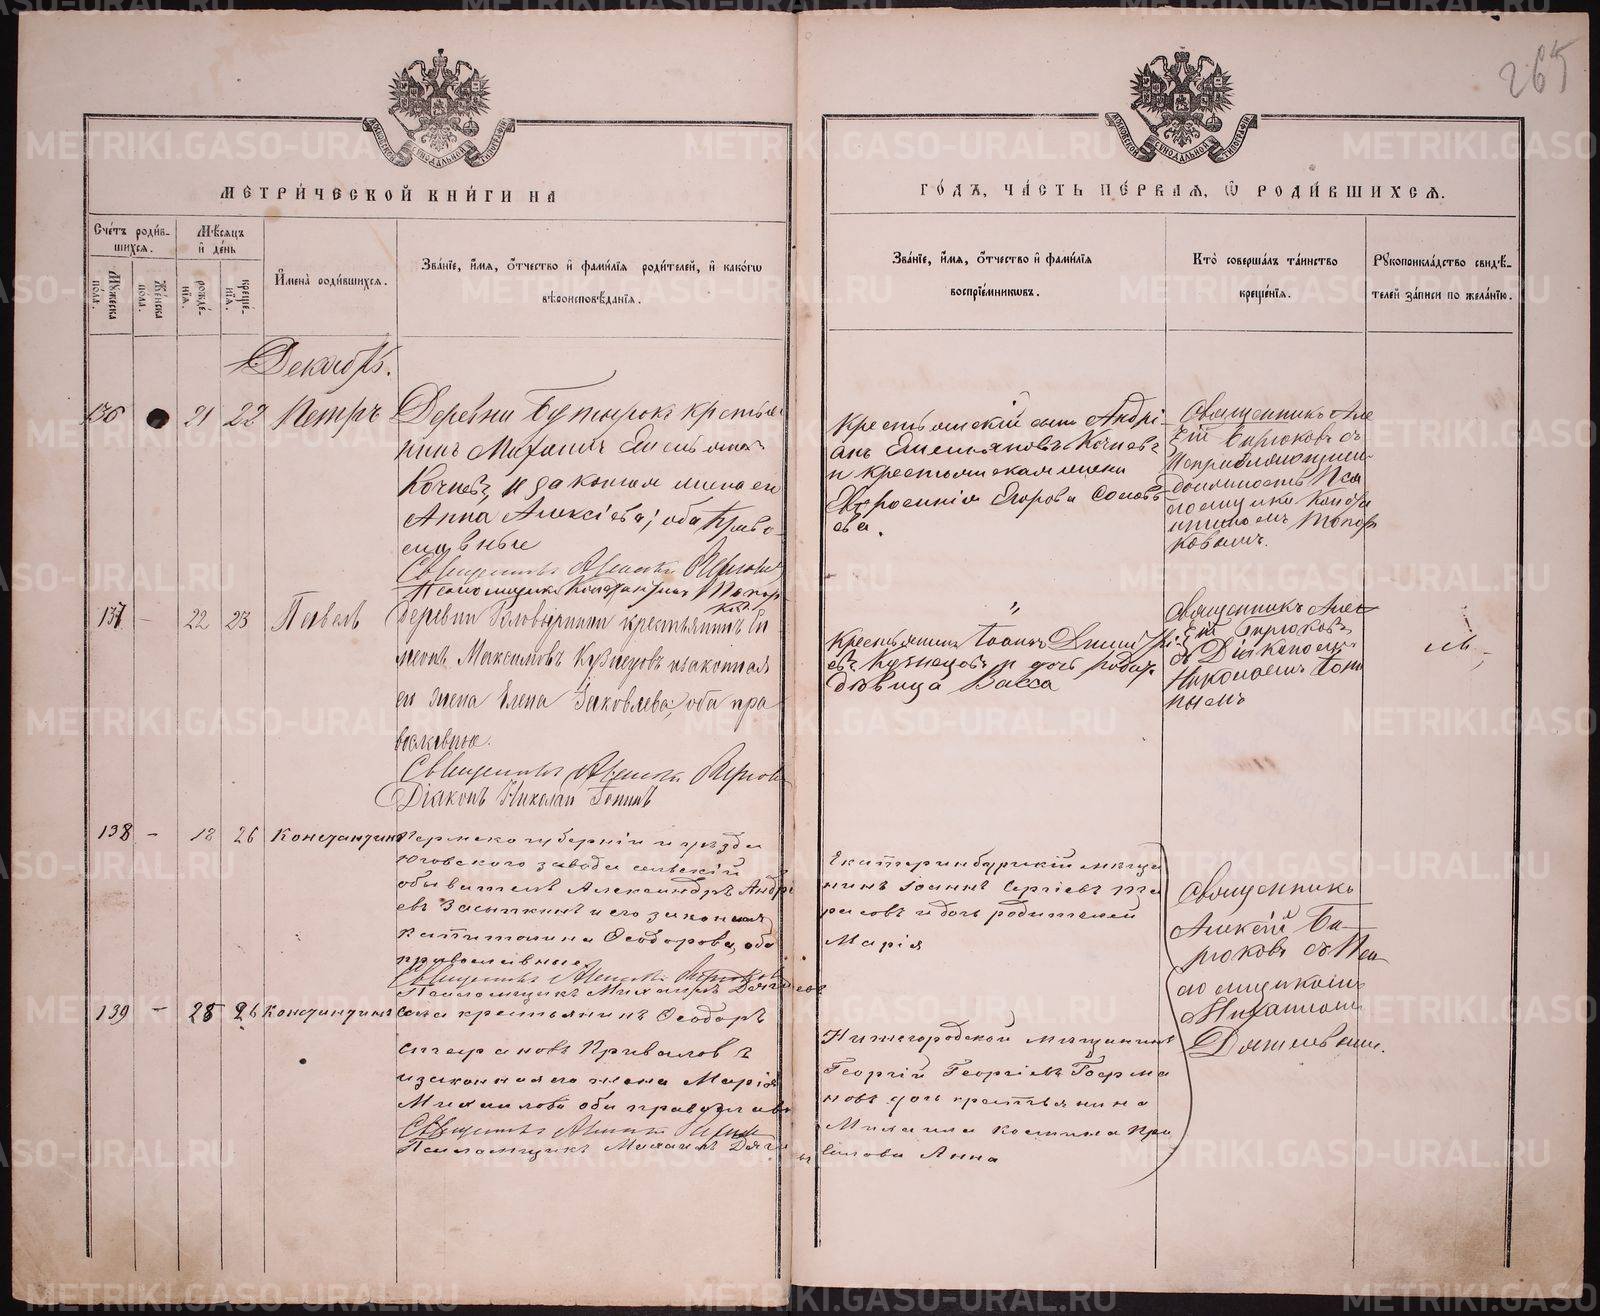 265
МЕТРИ́ЧЕСКОЙ КНИ́ГИ НА
ГО́ДЪ, ЧА́СТЬ ПЕ́РВАЯ, Ѽ РОДИ́ВШИХСЯ.
Сче́тъ роди́в-
шихся.
Мꙋ́жеска
по́ла.
Же́нска
по́ла.
Мѣ́сяцъ
и҆ де́нь
рожде́-
нїя.
креще́-
нїя.
И҆мена̀ родившихся.
Зва́нїе, и҆́мя, ѻ҆́тчество и҆ фами́лїя роди́телей, и҆ како́гѡ
вѣроисповѣ́данїя.
Зва́нїе, и҆́мя, ѻ҆́тчество и҆ фами́лїя
воспрїе́мниковъ.
Кто̀ соверша́лъ та́инство
креще́нїя.
Рꙋкоприкла́дство свидѣ́-
телей за́писи по жела́нїю.
Декабрь.
136
21 22 Петръ
Деревни Бутырокъ крестья
нинъ Михаилъ Емельяновъ
Кочневъ и законная жена его
Анна Алексіева; оба право
славные
Священникъ Алексій Бирюковъ
Псаломщикъ Константинъ Топор
ковъ
Крестьянскій сынъ Андрі
анъ Емельяновъ Кочневъ
и крестьянская жена
Евфросинія Егорова Соловь
ева.
Священникъ Алек
сій Бирюковъ съ
и. исправляющимъ
должность Пса
ломщика Конста
нтиномъ Топор
ковымъ.
137 - 22 23 Павелъ
Деревни Головырины крестьянинъ Си
меонъ Максимовъ Кузнецовъ и законная
его жена Елена Яковлева; оба пра
вославные.
Священникъ Алексій Бирюковъ
Діаконъ Николай Топинъ
Крестьянинъ Іоаннъ Димитрі
евъ Кузнецовъ и дочь родит.
дѣвица Васса
Священникъ Алек
сій Бирюковъ
съ Діакономъ
Николаемъ Топи
нымъ
138 - 18 26 Константинъ
Пермской губерніи и уѣзда
Юговского завода сельскій
обыватель Александръ Андре
евъ Засыпкинъ и его законная
Капитолина Ѳеодорова, оба
православные.
Священникъ Алексій Бирюковъ
Псаломщикъ Михаилъ Дягилевъ
Екатеринбургскій мѣща
нинъ Іоаннъ Сергіевъ Та
расовъ и дочь родителей
Марія
Священникъ
Алексій Би-
рюковъ съ Пса
ломщикомъ
Михаиломъ
Дягилевымъ.
139 - 25 26 Константинъ
Села крестьянинъ Ѳеодоръ
Стефановъ Приваловъ
и законная его жена Марія
Михаилова оба православ
Священникъ Алексій Бирюк
Псаломщикъ Михаилъ Дягилевъ
Нижегородской мѣщанинъ
Георгій Георгіевъ Гофма
новъ дочь крестьянина
Михаила Космина При
валова Анна